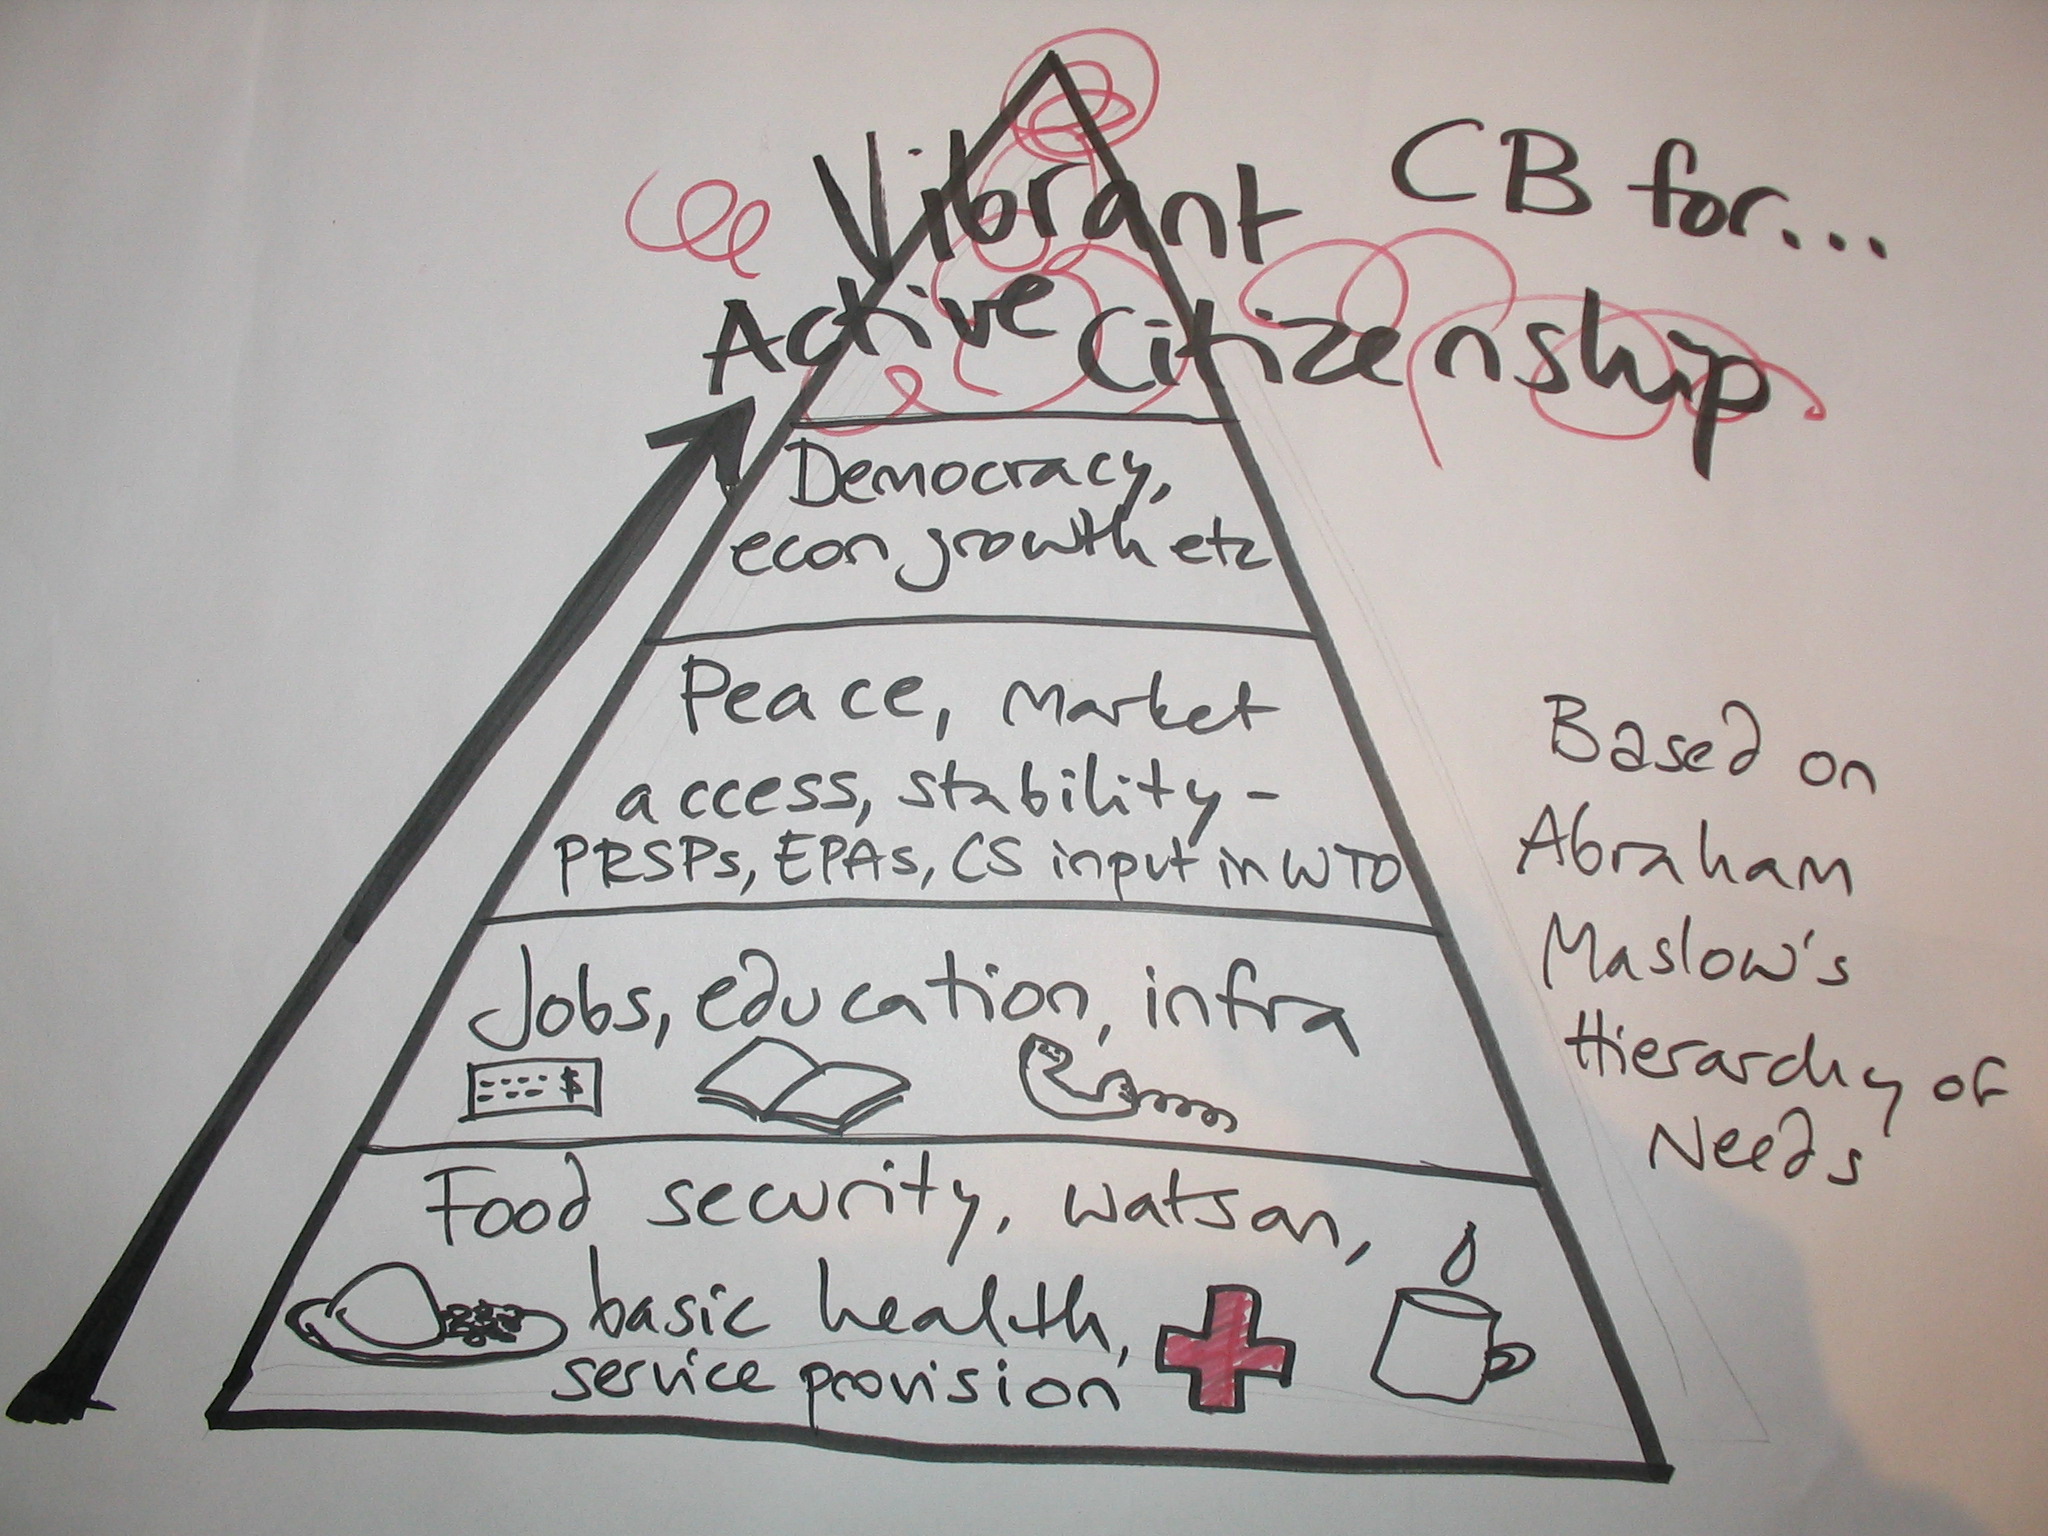 CB for...
Vibrant
Active Citizenship
Democracy,
econ growth etc
Peace, Market
access, stability -
PRSPs, EPAs, CS input in WTO
Jobs, education, infra
$
Food security, watsan,
basic health,
service provision
Based on
Abraham
Maslow's
Hierarchy of
Needs